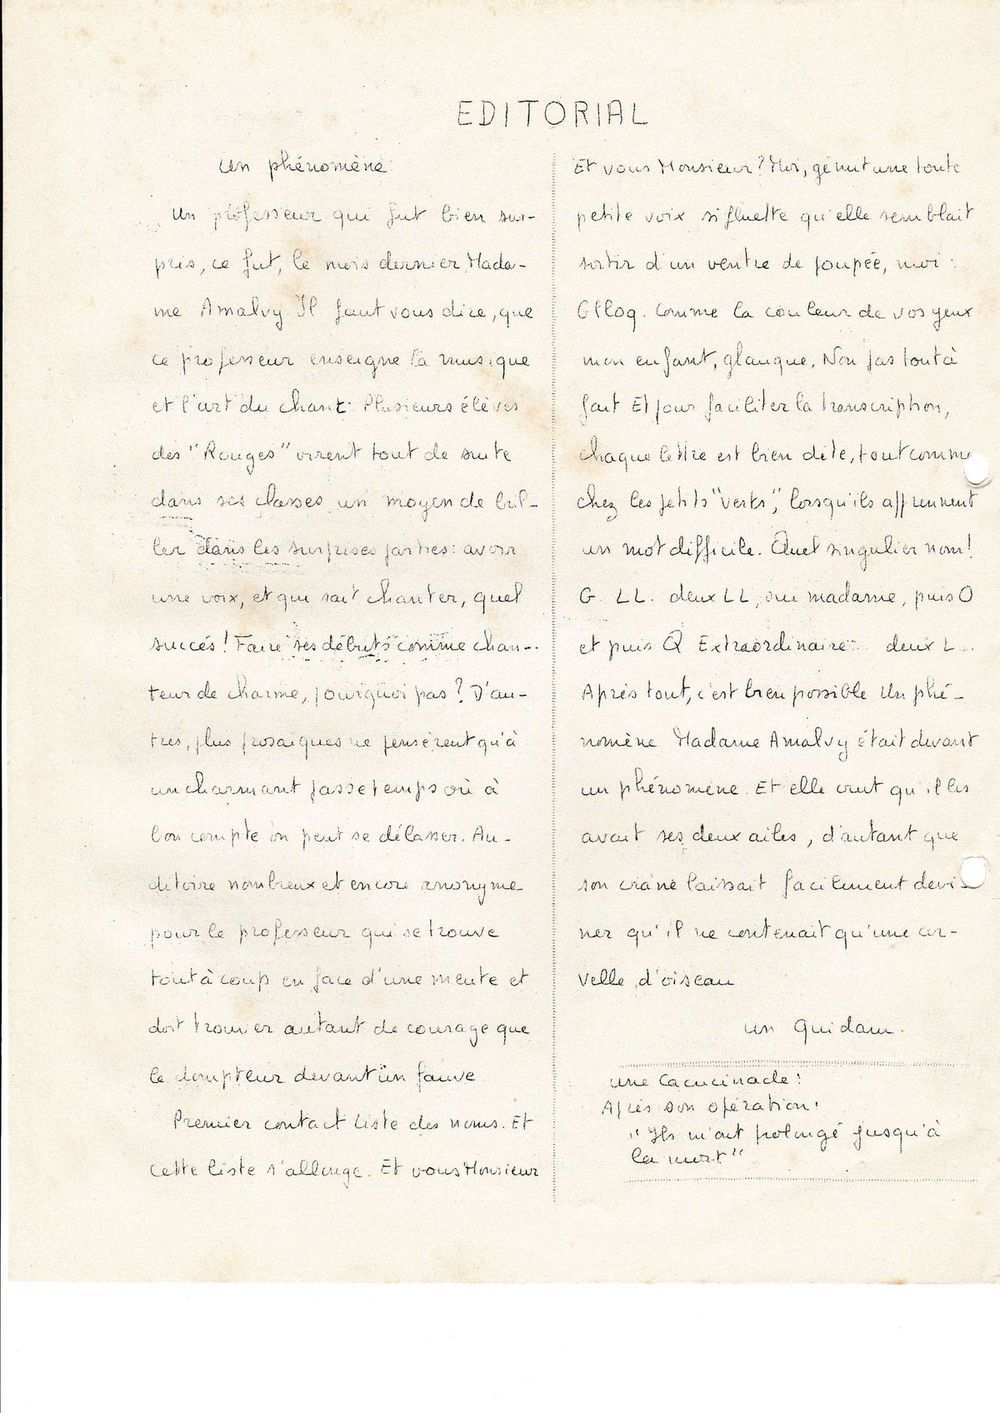 EDITORIAL
Un phénomène
Un professeur qui fut bien sur-
pris, ce fut, le mois dernier, Mada-
me Amalvy Il faut vous dire, que
ce professeur enseigne la musique
et l'art du chant. Plusieurs élèves
des "Rouges" virent tout de suite
dans ses classes un moyen de bril-
ler dans les surprises parties: avoir
une voix, et qui sait chanter, quel
succés! Faire ses débuts comme chan-
teur de charme, pourquoi pas? D'au-
tres, plus prosaiques ne pensèrent qu'à
un charmant passe temps où à
bon compte on peut se délasser. Au-
ditoire nombreux et encore anonyme
pour le professeur qui se trouve
tout à coup en face d'une meute et
doit trouver autant de courage que
le dompteur devant un fauve
Premier contact liste des noms. Et
cette liste s'allonge. Et vous Monsieur
Et vous Monsieur? Moi, gémit une toute
petite voix si fluette qu'elle semblait
sortir d'un ventre de poupée, moi:
Glloq. Comme la couleur de vos yeux
mon enfant, glauque, Non pas tout à
fait Et pour faciliter la transcription,
chaque lettre est bien dite, tout comme
chez les petits "verts", lorsqu'ils apprennent
un mot difficile. Quel singulier nom!
G. LL. deux LL, oui madame, puis O
et puis Q Extraordinaire deux L..
Après tout, c'est bien possible Un phé-
nomène Madame Amalvy était devant
un phénomène. Et elle crut qu'il les
avait ses deux ailes, d'autant que
son crâne laissait facilement devi-
ner qu'il ne contenait qu'une cer-
velle d'oiseau
un Quidam.
une Cacucinade:
Après son opération:
"Ils m'ont prolongé jusqu'à
la mort"